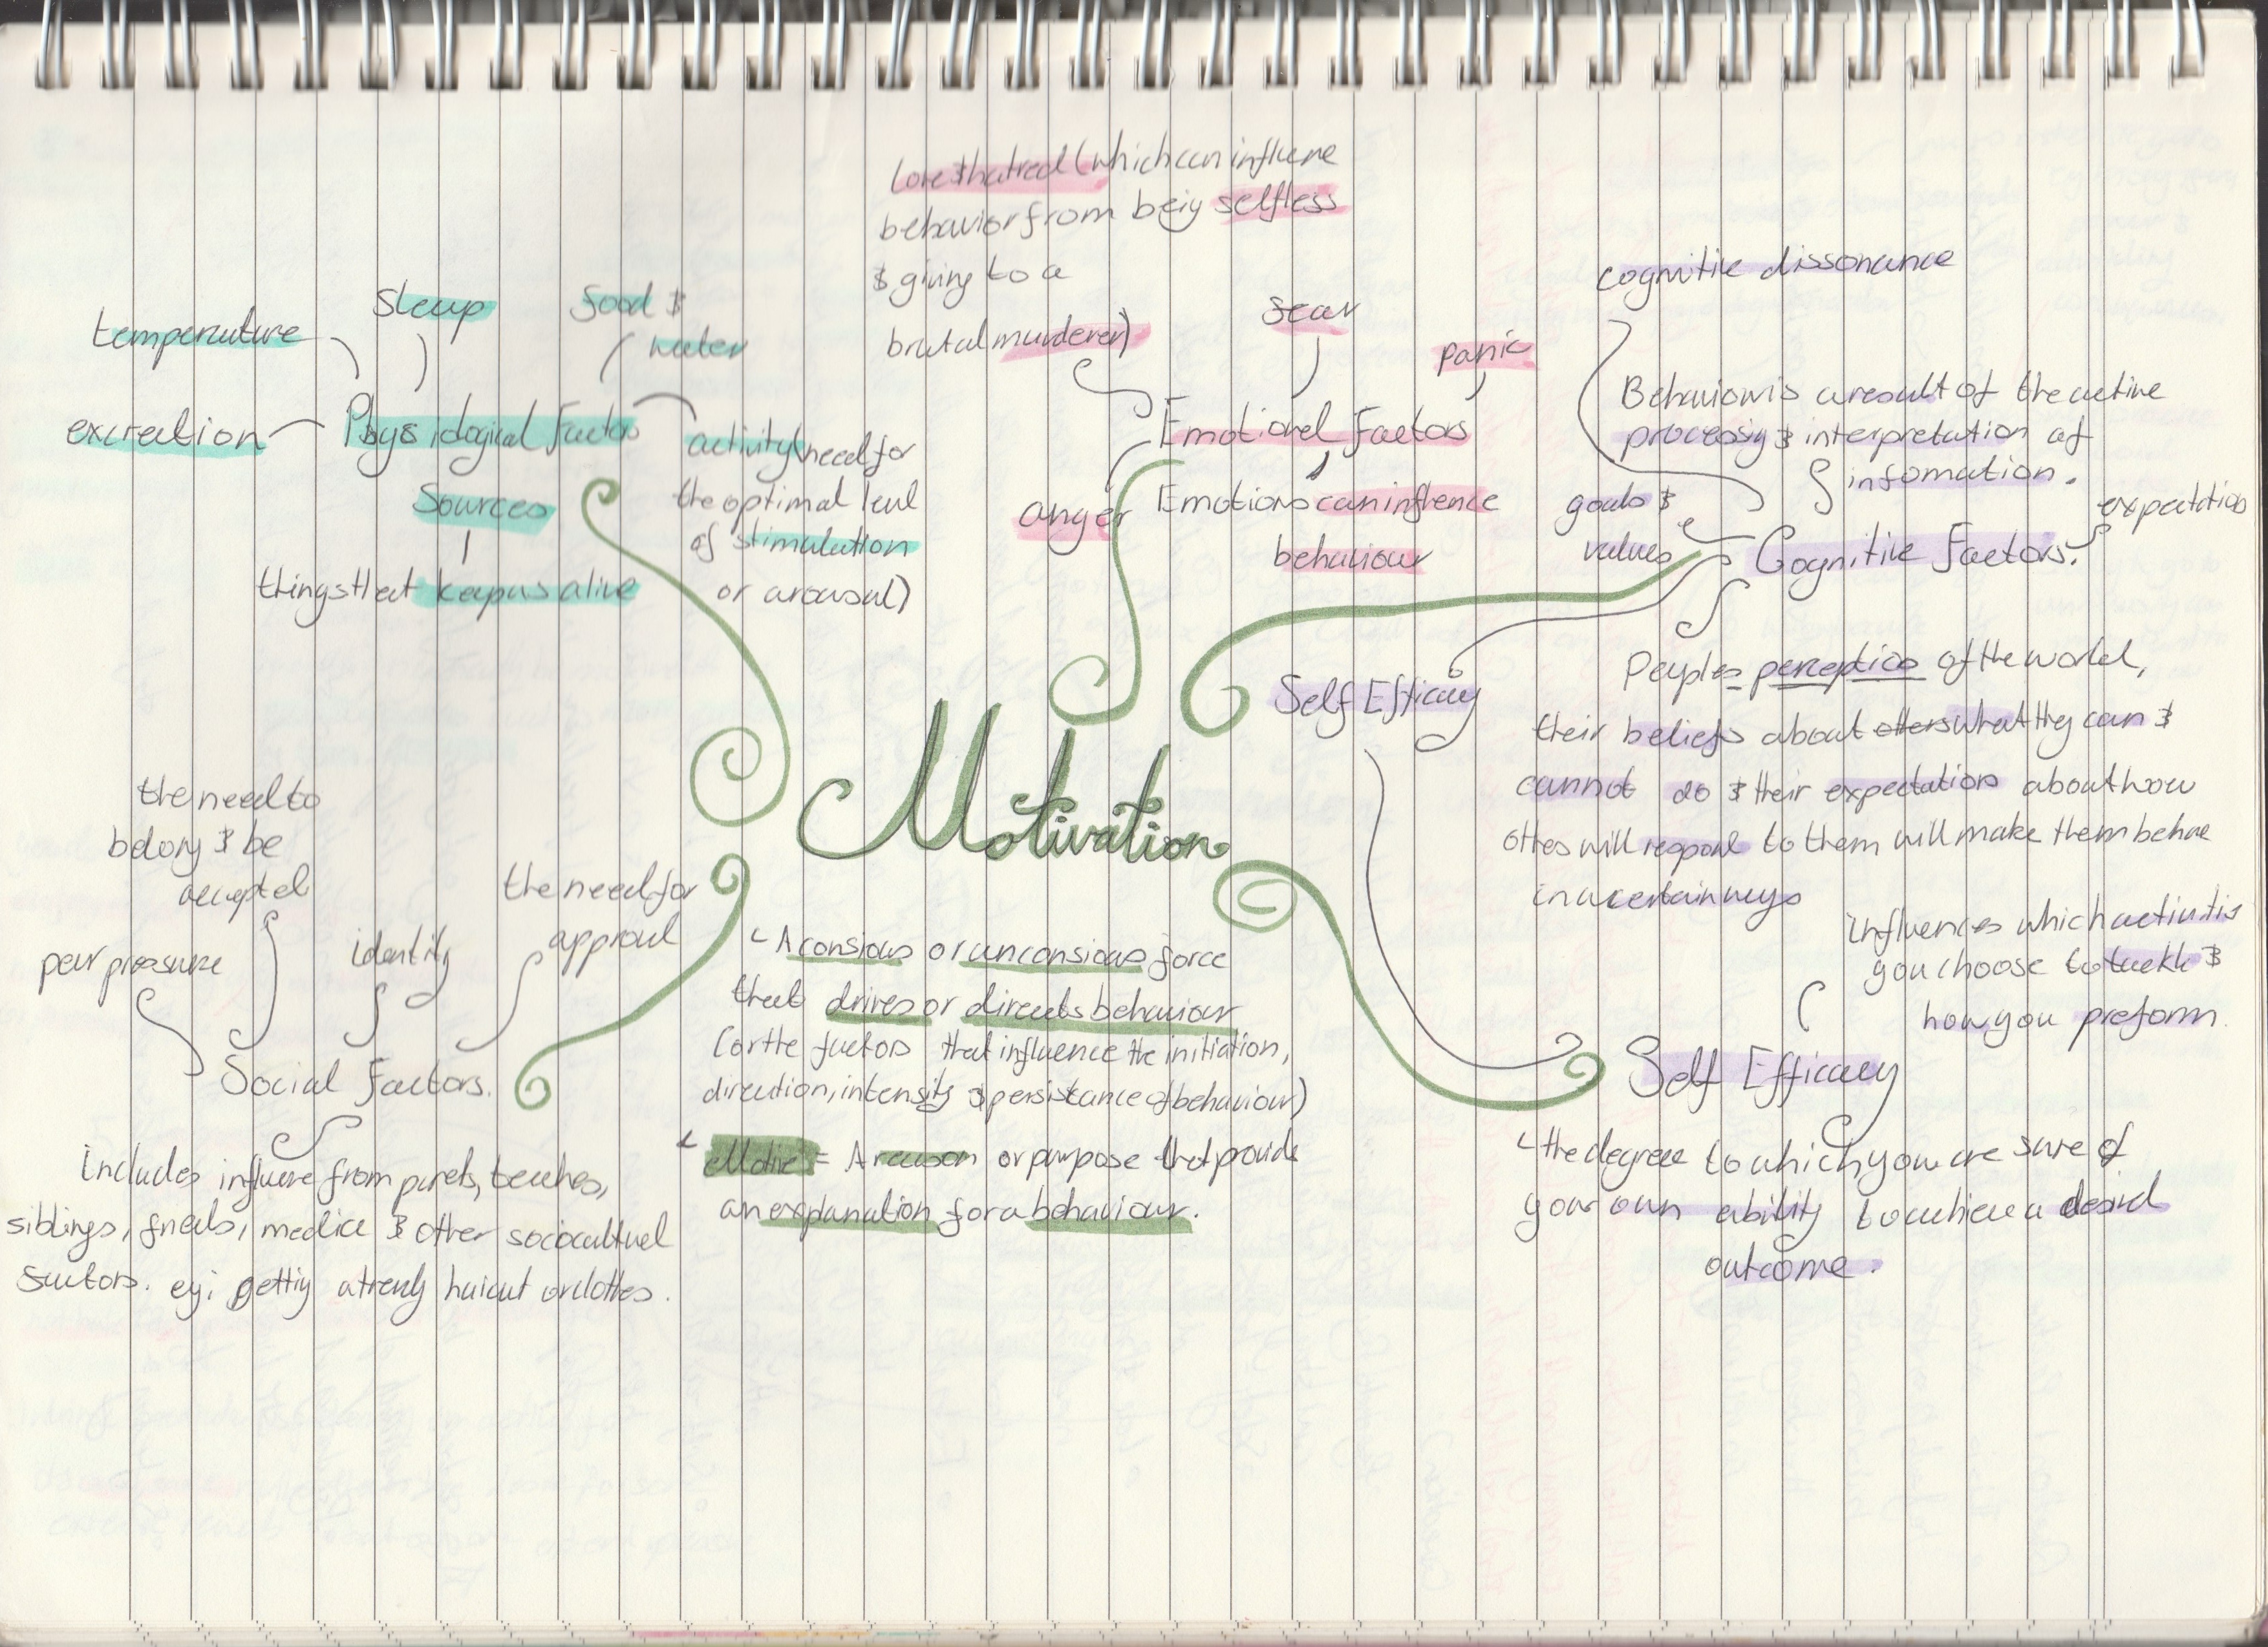 love & hatred (which can influene
behavior from beig selfless
& giving to a
brutal murderer)
fear
panic
Emotional Factors
anger
Emotions can influence
behaviour
temperature
sleep
food &
water
excreation
Physiological Factors
Sources
things that keep us alive
activity (need for
the optimal level
of stimulation
or arousal)
cognitive dissonance
Behaviour is a result of the active
processig & interpretation of
infomation.
goals &
values
expectations
Cognitive Factors.
Self Efficacy
Peoples perception of the world,
their beliefs about others what they can &
cannot do & their expectations about how
others will respond to them will make them behave
in a certain ways
Motivation
the need to
belong & be
accepted
peer pressure
identity
the need for
approval
Social Factors.
Includes influence from parents, teachers,
siblings, friends, media & other sociocultural
factors. eg: gettig a trendy haircut or clothes.
A consious or unconsious force
that drives or directs behaviour
(or the factors that influence the initiation,
direction, intensity & persistance of behaviour)
Motive = A reason or purpose that provids
an explanation for a behaviour.
influences which activitis
you choose to tackle &
how you preform.
Self Efficacy
the degree to which you are sure of
your own ability to achieve a desird
outcome.